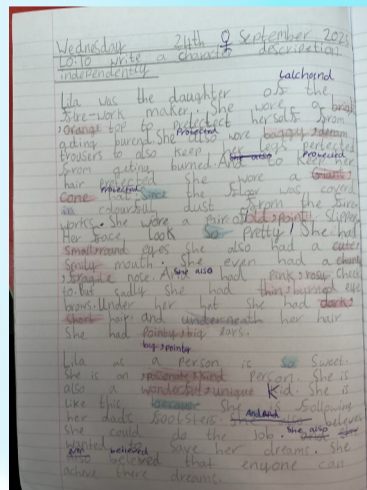 Wednesday 24th September 2025
L0: To write a character description
independently
Lalchand
Lila was the daughter of the
fire-work maker. She wore a bright
,orange top to protect herself from
Protected
geting burend. She also wore baggy, cream
trousers to also keep her legs pertected
Protected
from geting burned. And to keep her
hair Protected she wore a giant,
Protected
cone hat. Since the floor was coverd
in colourful dust from the fire
works. She wore a pair of old, pointy slippers
Her face look so pretty! She had
small, round eyes she also had a cute
smily mouth. She even had a
,fragile nose. She also had pink, rosy cheeks
to. But sadly she had thin, burned eye
brows. Under her hat she had dark,
short hair and underneath her hair
she had pointy, big ears.
big, pointy
Lila as a person is so sweet.
She is an kind person. She is
also a wonderful, unique Kid. She is
like this because she following
her dads footsteps. And believes
she could do the job. She also
wanted to save her dreams. She
even believed
belesved that enyone can
achieve there dreams.